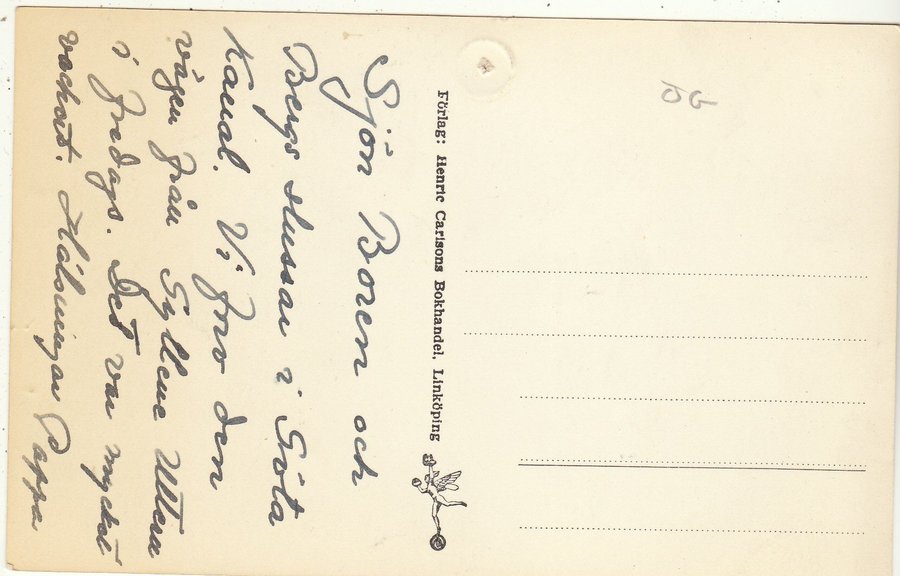 Sjön Boren och
Bergs slussar i Göta
Kanal. Vi for den
vägen från Gyllene Uttern
i fredags. Det var mycket
vackert. Hälsningar Pappa
Förlag: Henric Carlsons Bokhandel, Linköping